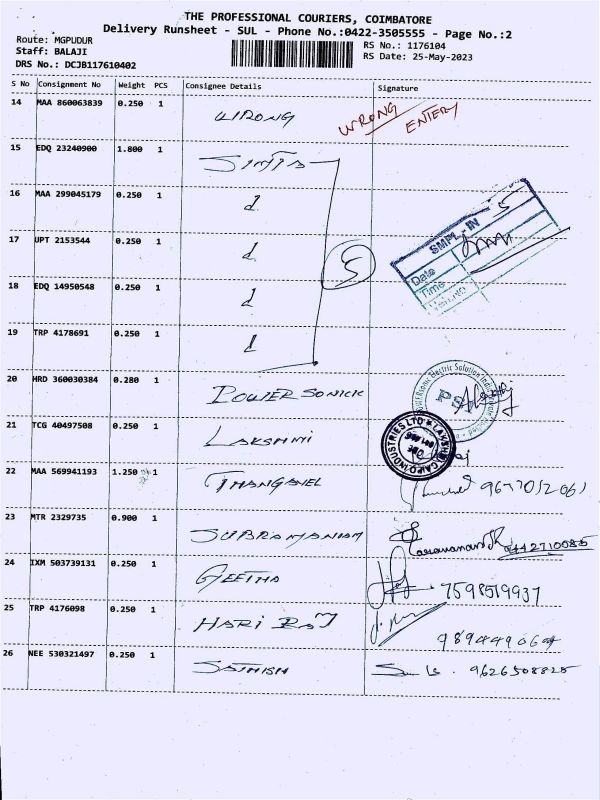 THE PROFESSIONAL COURIERS, COIMBATORE
Delivery Runsheet - SUL - Phone No.:0422-3505555 - Page No.:2
Route: MGPUDUR
RS No.: 1176104
Staff: BALAJI
RS Date: 25-May-2023
DRS No.: DCJB117610402
S No Consignment No Weight PCS Consignee Details Signature
14 MAA 860063839 0.250 1 WRONG WRONG ENTERY
15 EDQ 23240900 1.800 1
16 MAA 299045179 0.250 1 d
17 UPT 2153544 0.250 1 d
5
SMPL-IN
Date
Time
18 EDQ 14950548 0.250 1 d
19 TRP 4178691 0.250 1 d
20 HRD 360030384 0.280 1 POWER SONICK
21 TCG 40497508 0.250 1 LAKSHMI
22 MAA 569941193 1.250 1 THANGAVEL
23 MTR 2329735 0.900 1 SUBRAMANIAM
24 IXM 503739131 0.250 1 GEETHA 7598519937
25 TRP 4176098 0.250 1 HARI RAJ
26 NEE 530321497 0.250 1 SATHISH 9626508825